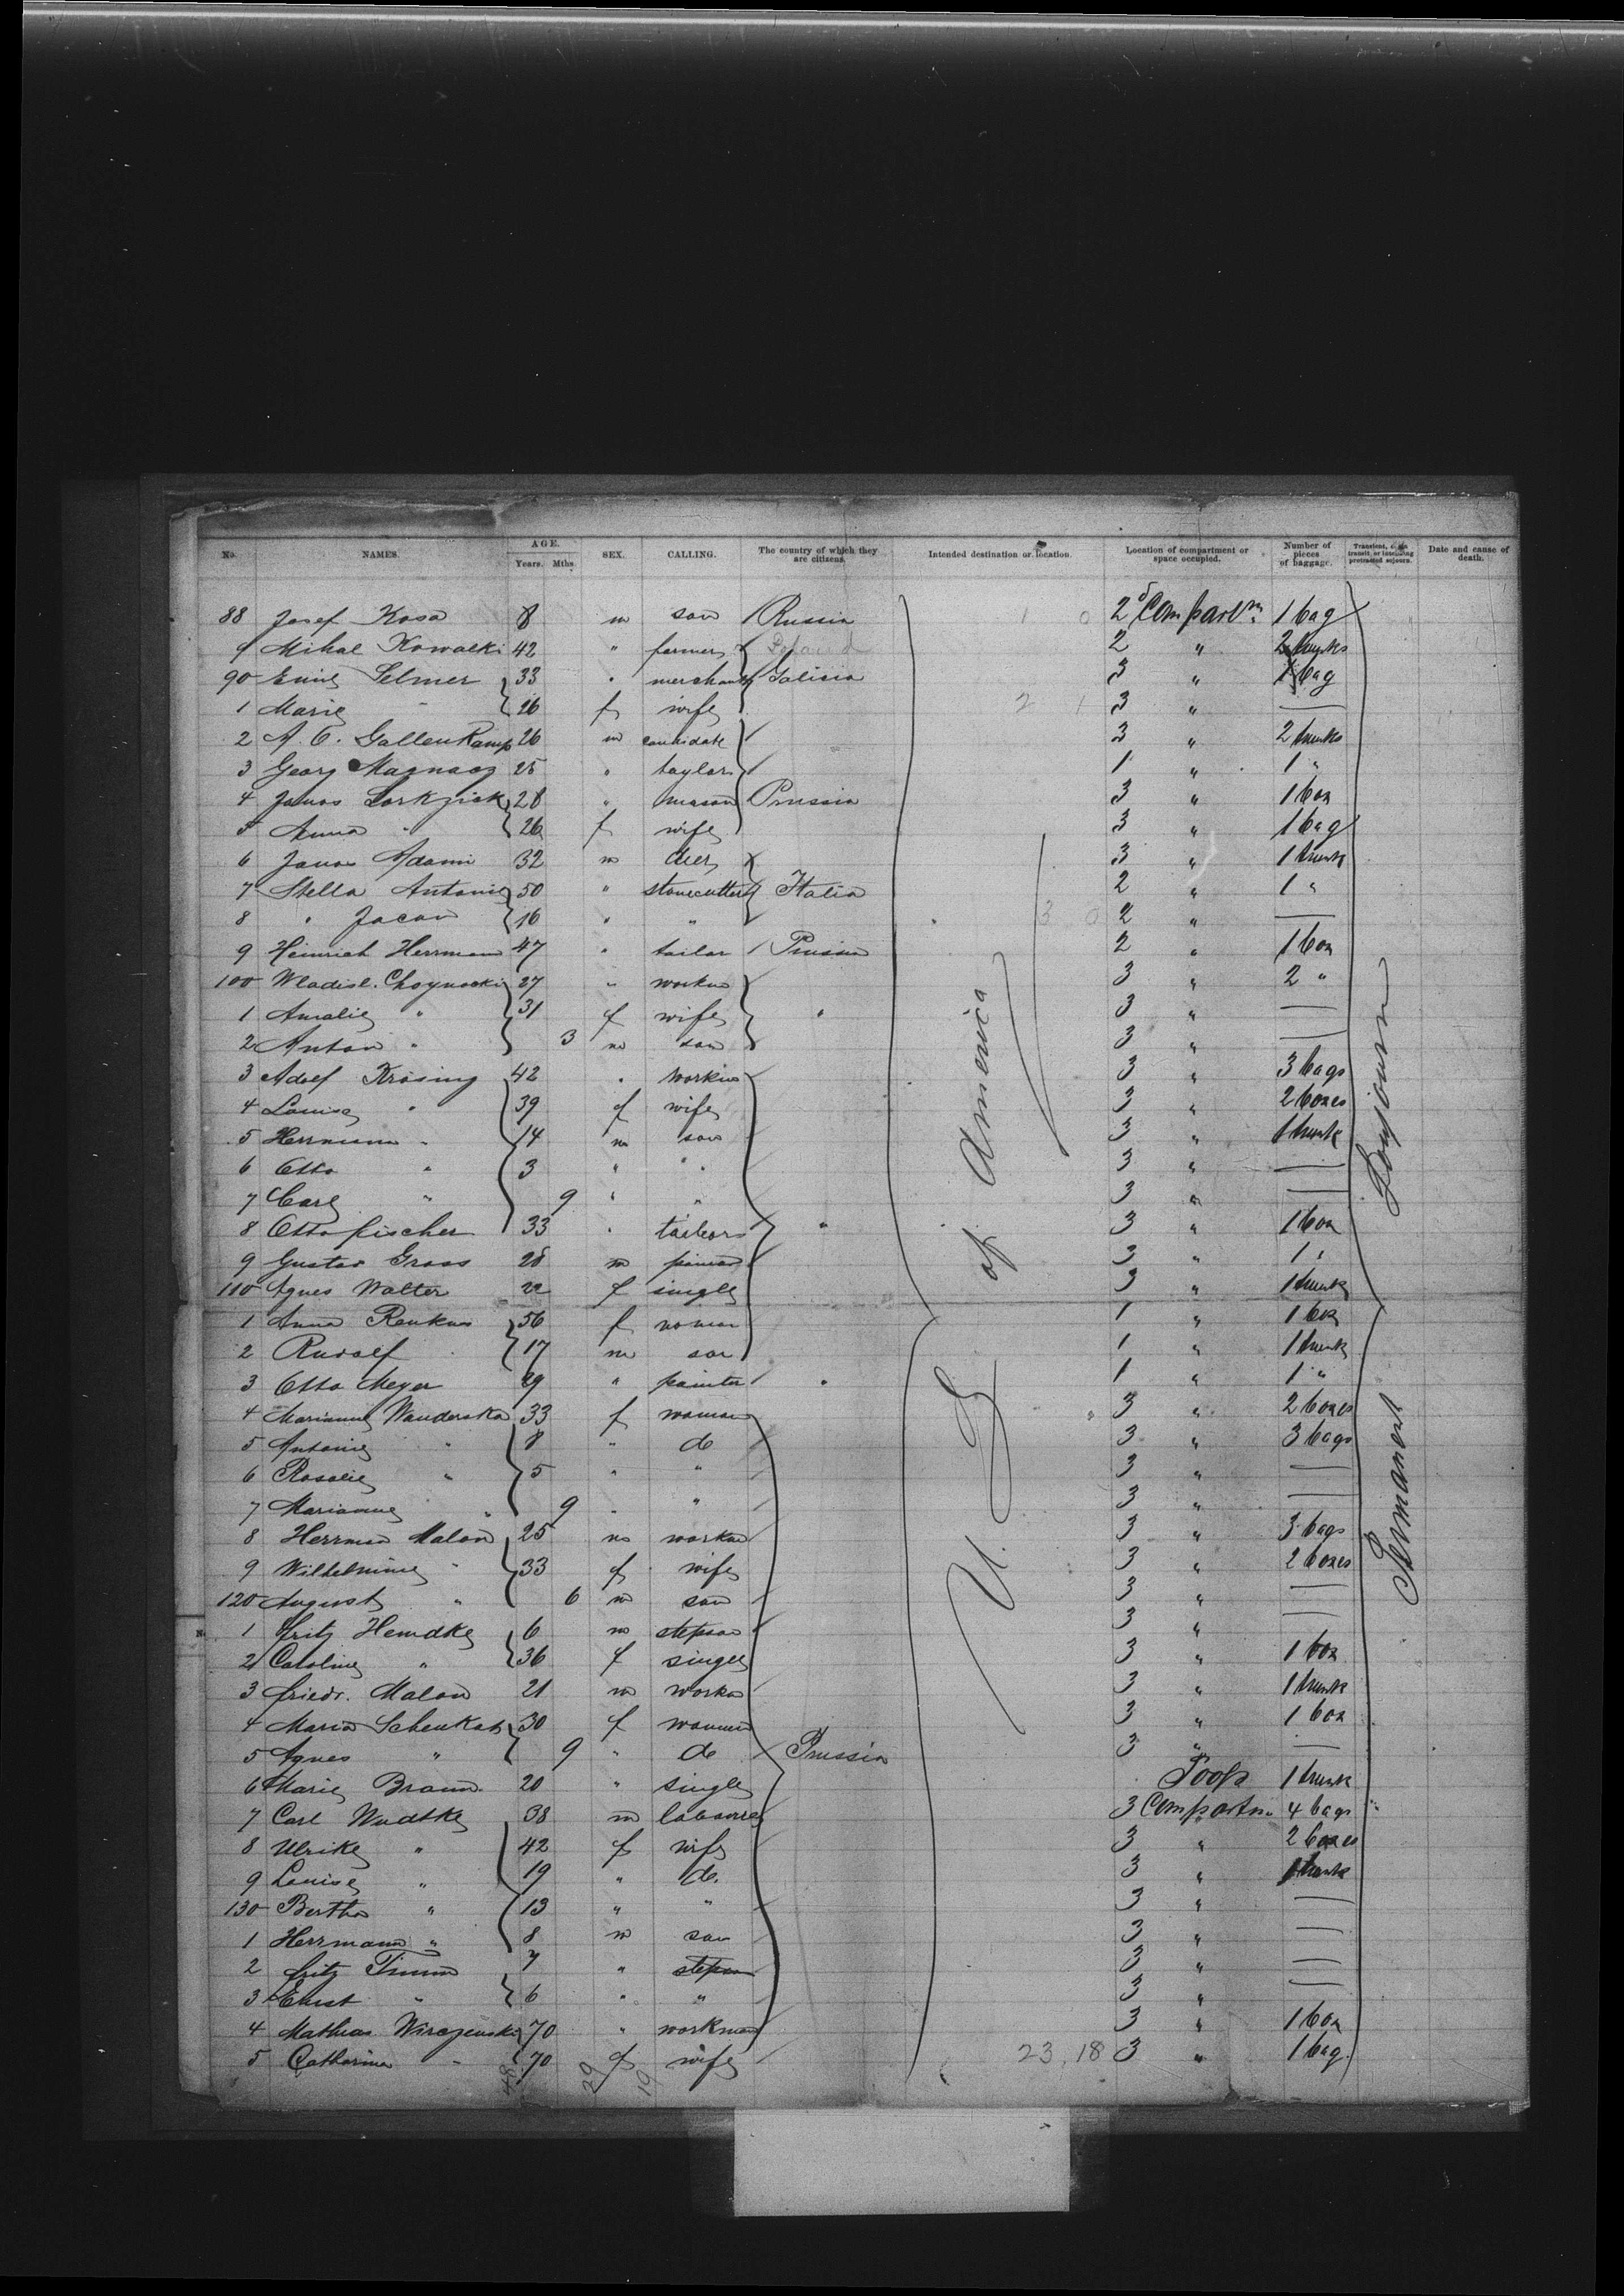 No. NAMES. AGE. Years. Mths. SEX. CALLING. The country of which they are citizens. Intended destination or location. Location of compartment or space occupied. Number of pieces of baggage. Transient, in transit, or intending protracted sojourn. Date and cause of death.
88 Josef Kosa 8 m son Russia 1 0 2d Compartm. 1 bag
9 Mihal Kowalki 42 " farmer Poland 2 " 2 trunks
90 Selmer 33 " merchant Galicia 3 " 1 bag
1 Marie " 26 f wife 2 1 3 " —
2 A. C. Gallenkamp 26 m candidate 3 " 2 trunks
3 Georg 25 " taylor 1 " 1 "
4 Janos 28 " mason Prussia 3 " 1 box
5 Anna " 26 f wife 3 " 1 bag
6 Janos Adami 32 m 3 " 1 trunk
7 Stella Antonio 50 " stonecutter Italia 2 " 1 "
8 " Jacan 16 " " 3 0 2 " —
9 Heinrich Herrmann 47 " tailor Prussia 2 " 1 box
100 Wladisl. Choynacki 27 " workm 3 " 2 "
1 Amalie " 31 f wife " 3 " —
2 Anton " 3 m son 3 " —
3 Adolf Krösing 42 " workm 3 " 3 bags
4 Louise " 39 f wife 3 " 2 boxes
5 Herrmann " 14 m son 3 " 1 trunk
6 Otto " 3 " " 3 " —
7 Carl " 9 " " 3 " —
8 Otto fischer 33 " tailor " 3 " 1 box
9 Gustav Grass 28 m 3 " 1 "
110 Agnes Walter 22 f single 3 " 1 trunk
1 Anna Renkus 56 f woman 1 " 1 box
2 Rudolf 17 m son 1 " 1 trunk
3 Otto Meyer 29 " painter " 1 " 1 "
4 Marianne Wanderska 33 f woman 3 " 2 boxes
5 Antonie " 8 " do 3 " 3 bags
6 Rosalie " 5 " " 3 " —
7 Marianne " 9 " " 3 " —
8 Herrman Malon 25 m workm 3 " 3 bags
9 Wilhelmine " 33 f wife 3 " 2 boxes
120 August " 6 m son 3 " —
1 fritz Hemdke 6 m stepson 3 " —
2 Caroline " 36 f single 3 " 1 box
3 friedr. Malon 21 m workm 3 " 1 trunk
4 Maria Schenkat 30 f woman 3 " 1 box
5 Agnes " 9 " do Prussia 3 " —
6 Marie Braun 20 " single Poop 1 trunk
7 Carl Wudtke 38 m labourer 3 Compartm. 4 bags
8 Ulrike " 42 f wife 3 " 2 boxes
9 Louise " 19 " do. 3 " 1 trunk
130 Bertha " 13 " " 3 " —
1 Herrmann " 8 m son 3 " —
2 fritz Timm 7 " stepson 3 " —
3 Ernst " 6 " " 3 " —
4 Mathias Wirczenski 70 " workman 3 " 1 box
5 Catharina " 70 f wife 23, 18 3 " 1 bag
48 29 19
U. S. of America
Permanent Sojourn